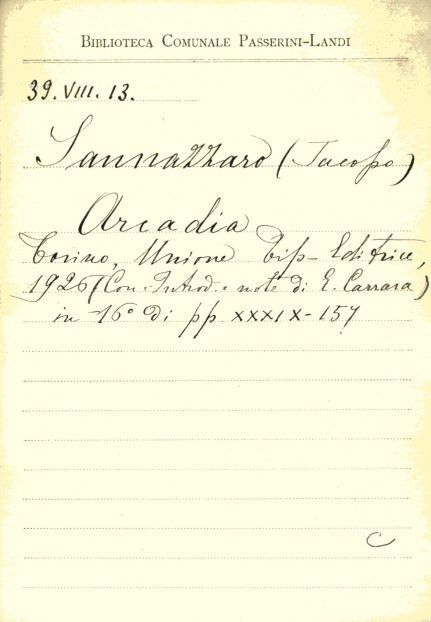 BIBLIOTECA COMUNALE PASSERINI-LANDI
39. VIII. 13.
Sannazzaro (Jacopo)
Arcadia
Torino, Unione Tip-Editrice,
1926 (Con Introd. e note di E. Carrara)
in 16° di pp XXXIX-157
C